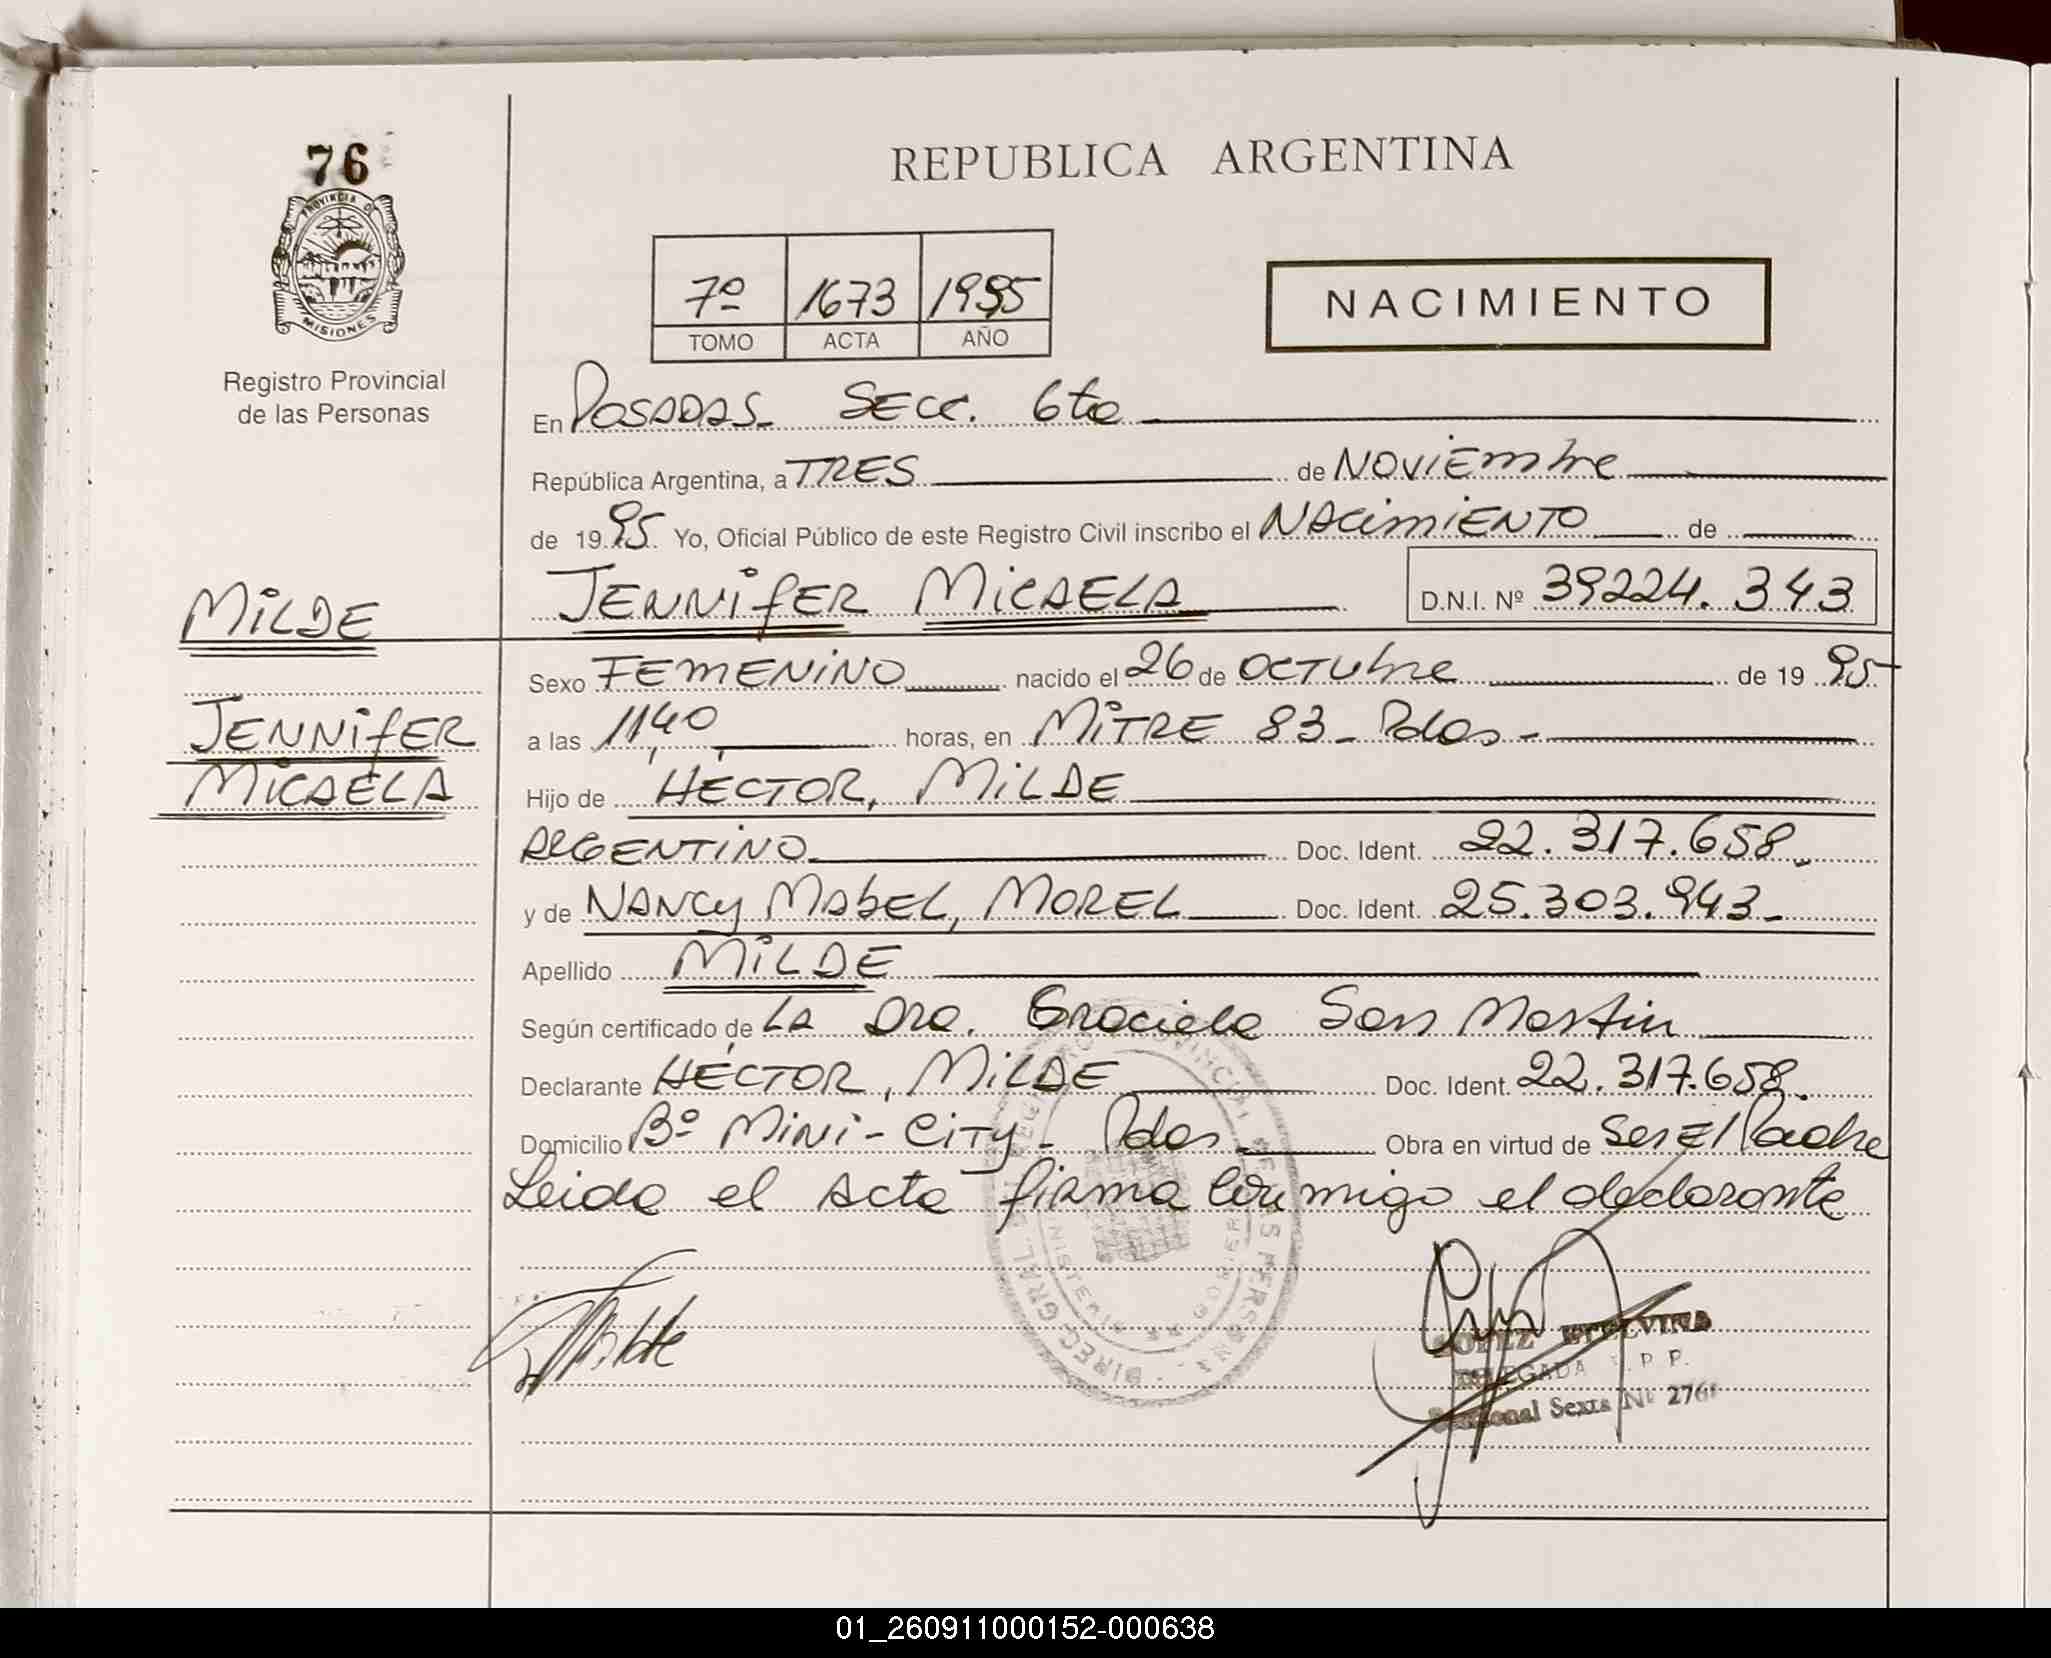 76
PROVINCIA DE
MISIONES
Registro Provincial
de las Personas
REPUBLICA ARGENTINA
7º 1673 1995
TOMO ACTA AÑO
NACIMIENTO
En POSADAS - SECC. 6ta
República Argentina, a TRES de NOVIEmbre
de 1995. Yo, Oficial Público de este Registro Civil inscribo el NACimiENTO de
MiLDE
JENNifER MICAELA D.N.I. Nº 39224.343
Sexo FEMENiNO nacido el 26 de OCTUbre de 1995
JENNifER
a las 11,40, horas, en MiTRE 83 - Pdas -
MICAELA
Hijo de HÉCTOR, MiLDE
ARGENTiNO Doc. Ident. 22.317.658.
y de NANCy MAbEL, MOREL Doc. Ident. 25.303.943-
Apellido MiLDE
Según certificado de LA Dra. Graciela San Martin
Declarante HÉCTOR, MiLDE Doc. Ident. 22.317.658.
Domicilio Bº MiNi-CiTy - Pdas - Obra en virtud de Ser El Padre
Leida el Acta firma conmigo el declarante
DIREC. GRAL. DEL REGISTRO PROVINCIAL DE LAS PERSONAS
Milde
LOPEZ ETELVINA
DELEGADA R. P. P.
Seccional Sexta Nº 276
01_260911000152-000638